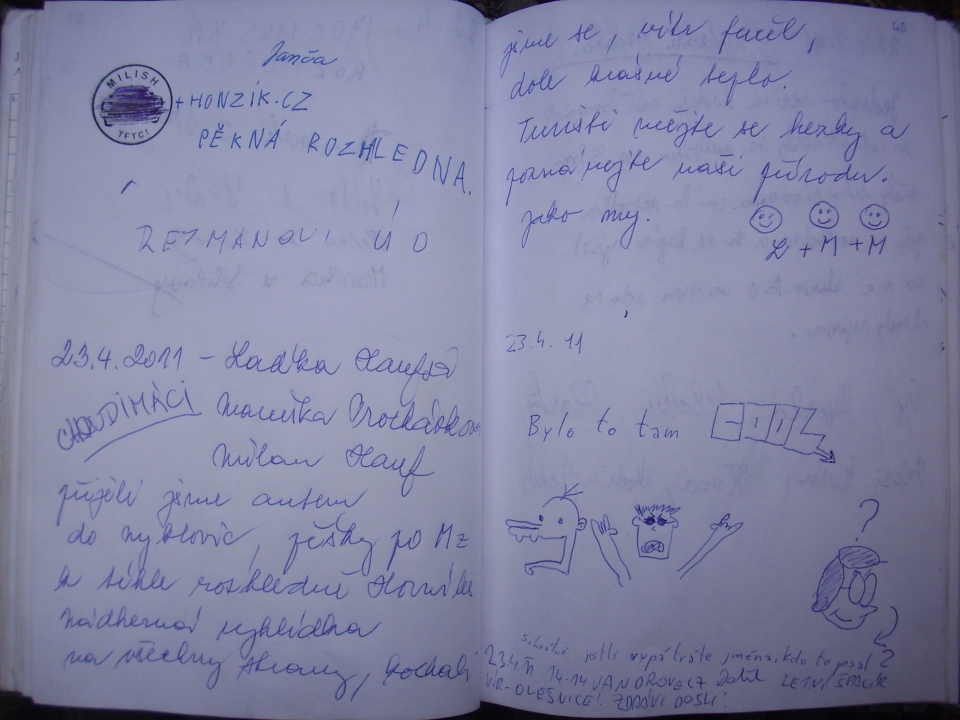 Janča
MILISH
TFTC!
+HONZÍK.CZ
PĚKNÁ ROZHLEDNA.
23.4.2011 - Laďka
CHRUDIMÁCI
Milan Hauf
přijeli jsme autem
do Nyklovic, pěšky po Mz
k téhle rozhledně Horní les
nádherná vyhlídka
na všechny strany, kochali
40
jsme se, vítr fučel,
dole krásné teplo.
Turisti mějte se hezky a
poznávejte naši přírodu.
jako my.
L + M + M
23.4.11
Bylo to tam
?
schválně jestli vypátráte jména, kdo to psal ?
23.4.11 14.14 VANDROVEC Z LETNÍ
VÍR-OLEŠNICE! ZDRAVÍ DOŠLI!